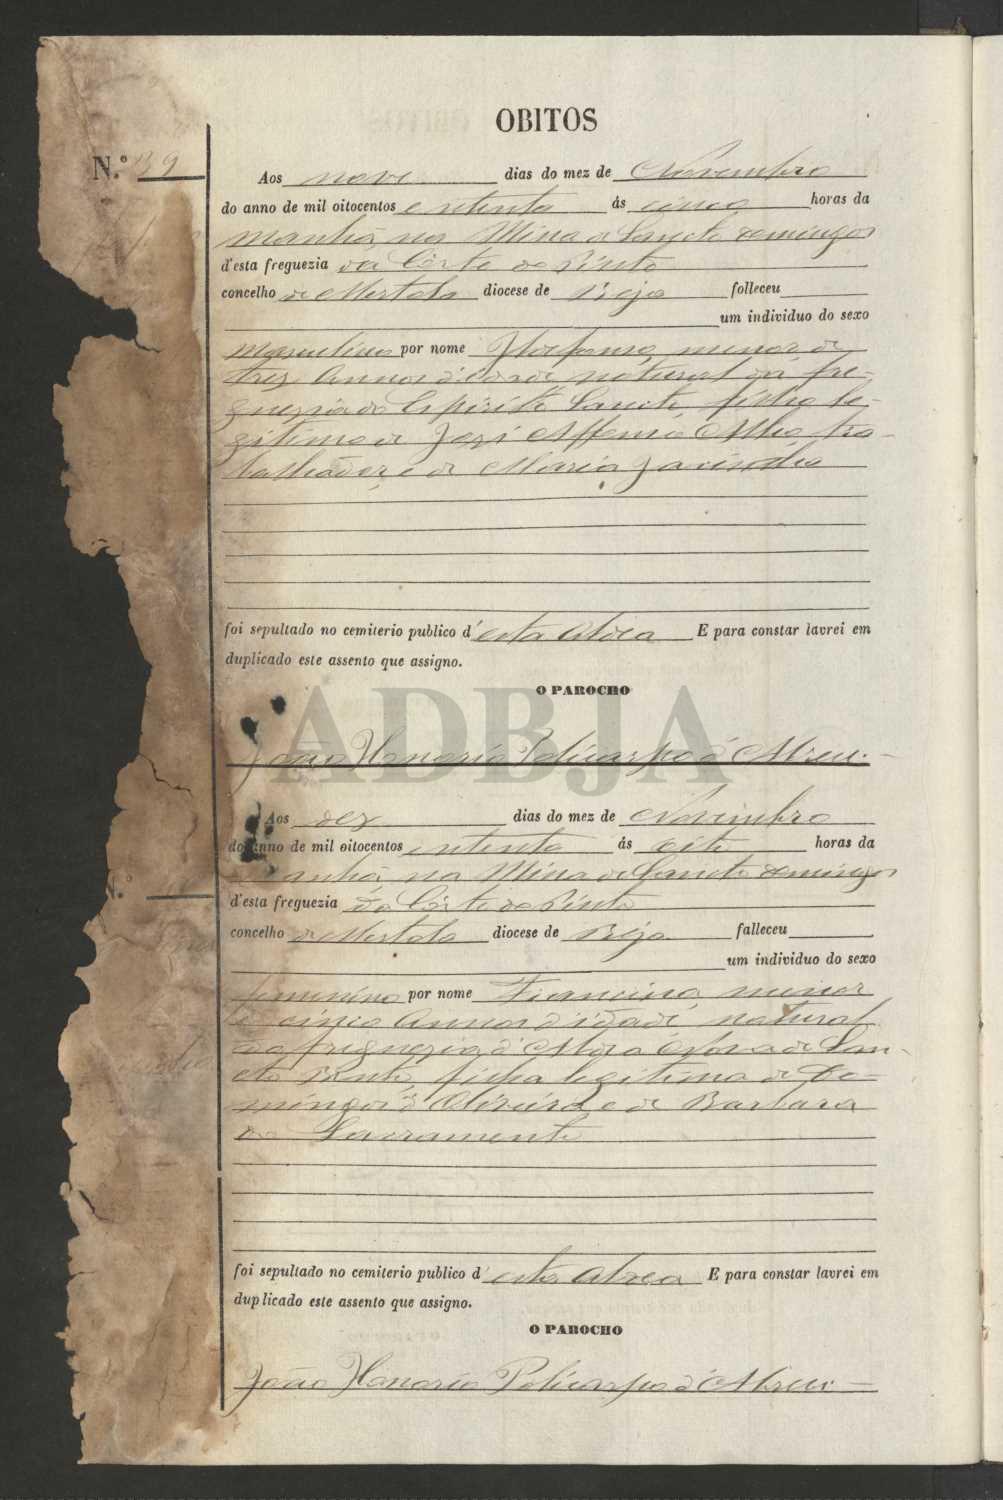 OBITOS
N.º 39
Aos nove dias do mez de Novembro
do anno de mil oitocentos e setenta ás cinco horas da
manhã, na Mina de Sancto Domingos
d'esta freguezia da Côrte do Pinto
concelho de Mertola diocese de Beja falleceu
um individuo do sexo
masculino por nome Ildefonso, menor de
trez annos d'edade, natural da fre-
guezia do Espirito Sancto, filho le-
gitimo de José Affonso, tra-
balhador, e de Maria Jacintha
foi sepultado no cemiterio publico d'esta aldea E para constar lavrei em
duplicado este assento que assigno.
O PAROCHO
ADBJA
João Honorio Policarpo d'Abreu.
Aos dez dias do mez de Novembro
do anno de mil oitocentos e setenta ás oito horas da
manhã, na Mina de Sancto Domingos
N.º
d'esta freguezia da Côrte do Pinto
concelho de Mertola diocese de Beja falleceu
um individuo do sexo
feminino por nome Francisca, menor
de cinco annos d'idade, natural
da freguezia d'Aldea Nova de San-
cto Bento, filha legitima de Do-
mingos d'Oliveira, e de Barbara
do Sacramento
foi sepultado no cemiterio publico d'esta aldea E para constar lavrei em
duplicado este assento que assigno.
O PAROCHO
João Honorio Policarpo d'Abreu.